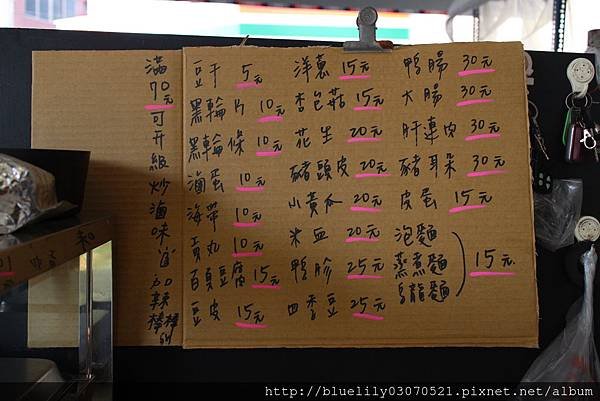 滿70元可升級炒滷味 加辣棒棒
豆干 5元
黑輪片 10元
黑輪條 10元
滷蛋 10元
海帶 10元
貢丸 10元
百頁豆腐 15元
豆皮 15元
洋蔥 15元
杏包菇 15元
花生 20元
豬頭皮 20元
小黃瓜 20元
米血 20元
鴨胗 25元
四季豆 25元
鴨腸 30元
大腸 30元
肝連肉 30元
豬耳朵 30元
皮蛋 15元
泡麵
蒸煮麵
烏龍麵
15元
http://bluelily03070521.pixnet.net/album